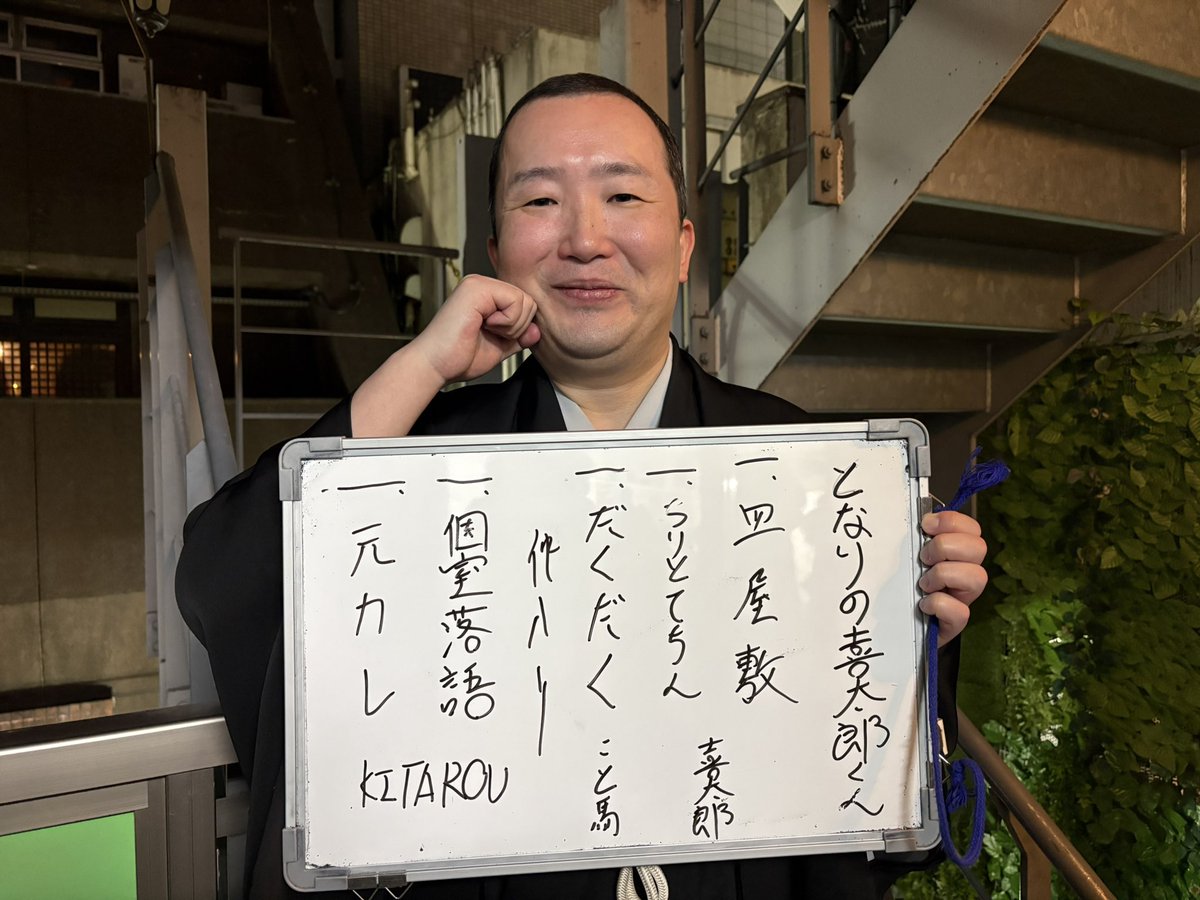 となりの喜太郎くん
一、皿屋敷
一、ちりとてちん
喜太郎
一、だくだく こと馬
仲入り
一、個室落語
一、元カレ
KITAROU